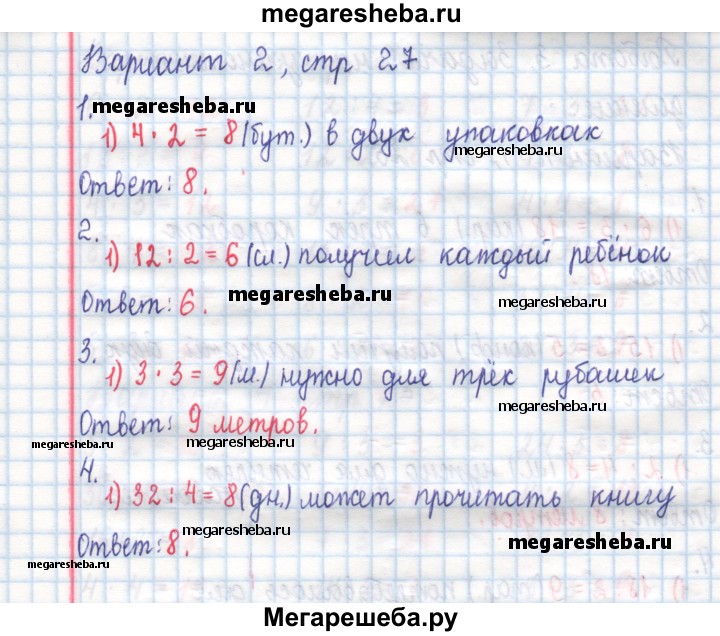 megaresheba.ru
Вариант 2, стр 27
1.
megaresheba.ru
1) 4 · 2 = 8 (бут.) в двух упаковках
megaresheba.ru
Ответ: 8.
2.
1) 12 : 2 = 6 (сл.) получил каждый ребёнок
Ответ: 6.
megaresheba.ru
megaresheba.ru
3.
1) 3 · 3 = 9 (м.) нужно для трёх рубашек
megaresheba.ru
Ответ: 9 метров.
megaresheba.ru
megaresheba.ru
4.
1) 32 : 4 = 8 (дн.) может прочитать книгу
megaresheba.ru
Ответ: 8.
megaresheba.ru
megaresheba.ru
Мегарешеба.ру